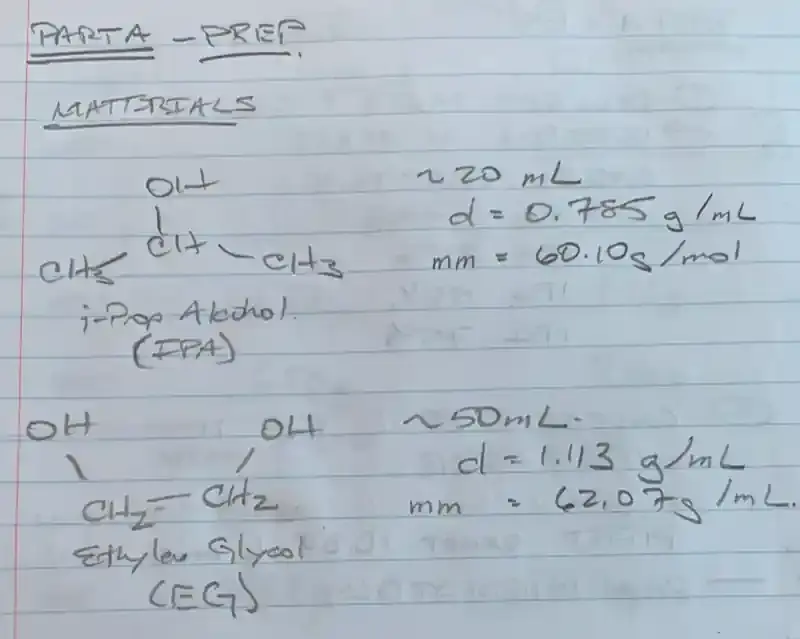 PART A - PREP.
MATTERIALS
OH
CH
CH3
CH3
i-Prop Alcohol.
(IPA)
~20 mL
d = 0.785 g/mL
mm = 60.10g/mol
OH
OH
CH2 - CH2
Ethylen Glycol
(EG)
~50mL.
d = 1.113 g/mL
mm = 62.07g/mL.